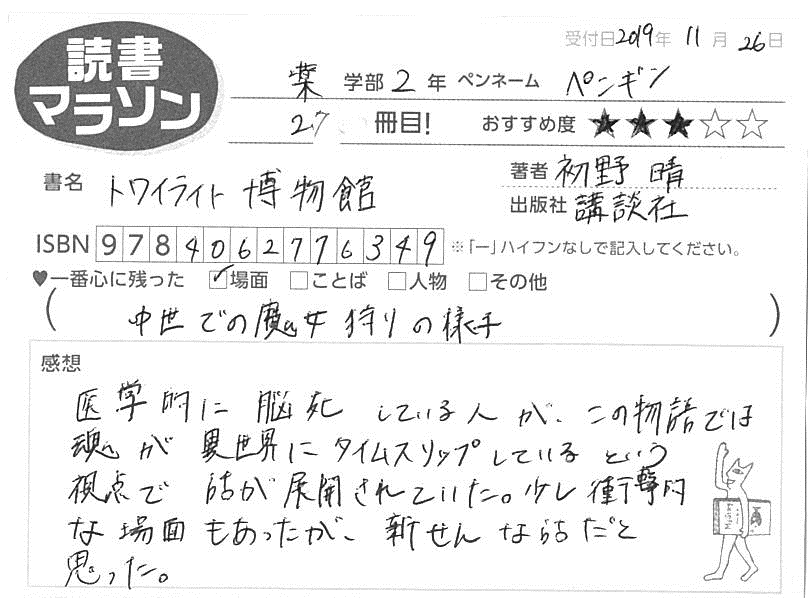 受付日2019年 11月 26日
読書
マラソン
薬 学部 2 年 ペンネーム ペンギン
27 冊目! おすすめ度 ★★★☆☆
書名 トワイライト博物館
著者 初野 晴
出版社 講談社
ISBN 9784062776349 ※「ー」ハイフンなしで記入してください。
♥一番心に残った ☑場面 □ことば □人物 □その他
(中世での魔女狩りの様子)
感想
医学的に脳死している人が、この物語では
魂が異世界にタイムスリップしているという
視点で話が展開されていた。少し衝撃的
な場面もあったが、新せんな話だと
思った。